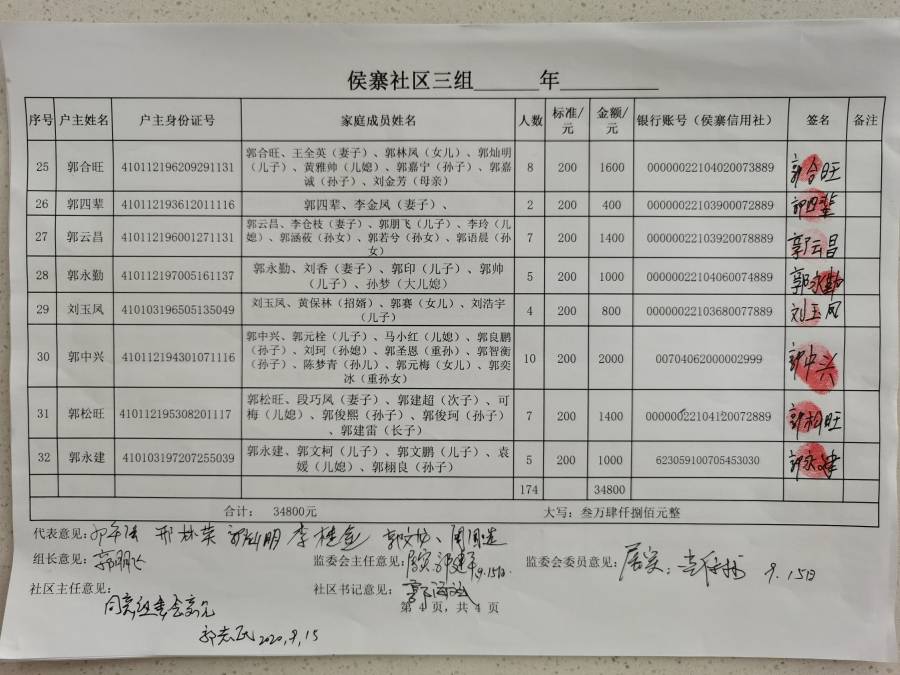 侯寨社区三组______年________
序号 户主姓名 户主身份证号 家庭成员姓名 人数 标准/元 金额/元 银行账号（侯寨信用社） 签名 备注
25 郭合旺 410112196209291131 郭合旺、王全英（妻子）、郭林凤（女儿）、郭灿明（儿子）、黄雅帅（儿媳）、郭嘉宁（孙子）、郭嘉诚（孙子）、刘金芳（母亲） 8 200 1600 00000022104020073889 郭合旺
26 郭四辈 410112193612011116 郭四辈、李金凤（妻子）、 2 200 400 00000022103900072889 郭四辈
27 郭云昌 410112196001271131 郭云昌、李仓枝（妻子）、郭朋飞（儿子）、李玲（儿媳）、郭涵莜（孙女）、郭若兮（孙女）、郭语晨（孙女） 7 200 1400 00000022103920078889 郭云昌
28 郭永勤 410112197005161137 郭永勤、刘香（妻子）、郭印（儿子）、郭帅（儿子）、孙梦（大儿媳） 5 200 1000 00000022104060074889 郭永勤
29 刘玉凤 410103196505135049 刘玉凤、黄保林（招婿）、郭赛（女儿）、刘浩宇（儿子） 4 200 800 00000022103680077889 刘玉凤
30 郭中兴 410112194301071116 郭中兴、郭元栓（儿子）、马小红（儿媳）、郭良鹏（孙子）、刘珂（孙媳）、郭圣恩（重孙）、郭智衡（孙子）、陈梦青（孙儿）、郭元梅（女儿）、郭奕冰（重孙女） 10 200 2000 00704062000002999 郭中兴
31 郭松旺 410112195308201117 郭松旺、段巧凤（妻子）、郭建超（次子）、可梅（儿媳）、郭俊熙（孙子）、郭俊珂（孙子）、郭建雷（长子） 7 200 1400 00000022104120072889 郭松旺
32 郭永建 410103197207255039 郭永建、郭文柯（儿子）、郭文鹏（儿子）、袁媛（儿媳）、郭栩良（孙子） 5 200 1000 623059100705453030 郭永建
174 34800
合计： 34800元 大写：叁万肆仟捌佰元整
代表意见：邢林荣 郭灿明 李桂金
组长意见：郭朋飞 监委会主任意见：属实 9.15日 监委会委员意见：属实： 9.15日
社区主任意见： 社区书记意见：
同意组委会意见
第 4 页，共 4 页
郭志民 2020.9.15